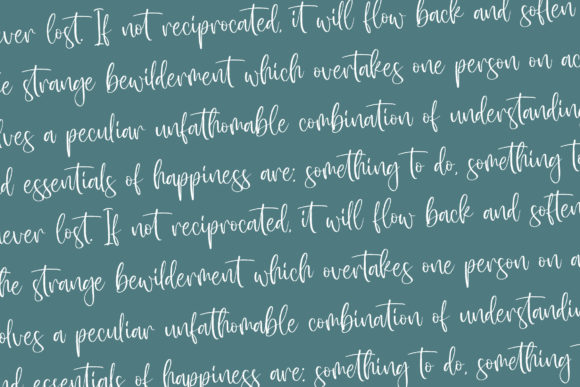 ever lost. If not reciprocated, it will flow back and soften
he strange bewilderment which overtakes one person on ac
lves a peculiar unfathomable combination of understandin
d essentials of happiness are: something to do, something to
never lost. If not reciprocated, it will flow back and soften
the strange bewilderment which overtakes one person on a
olves a peculiar unfathomable combination of understanding
nd essentials of happiness are: something to do, something